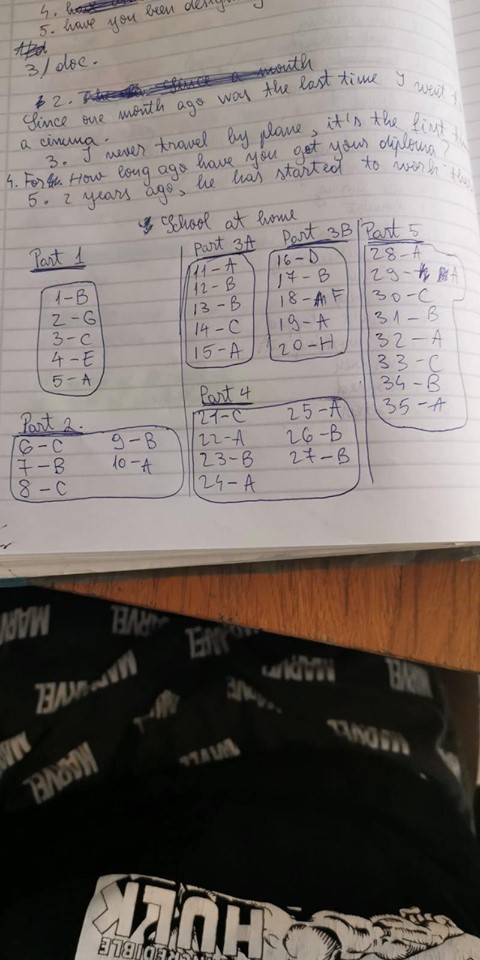 4.
5. have you been designing
3/ doc.
2.
Since one month ago was the last time I went t
a cinema.
3. I never travel by plane, it's the first t
4. How long ago have you got your diploma?
5. 2 years ago, he has started to work
School at home
Part 1
1-B
2-G
3-C
4-E
5-A
Part 2.
6-C 9-B
7-B 10-A
8-C
Part 3A
11-A
12-B
13-B
14-C
15-A
Part 3B
16-D
17-B
18-F
19-A
20-H
Part 4
21-C 25-A
22-A 26-B
23-B 27-B
24-A
Part 5
28-A
29-A
30-C
31-B
32-A
33-C
34-B
35-A
MARVEL
MARVEL
MARVEL
MARVEL
MARVEL
MARVEL
HULK
INCREDIBLE